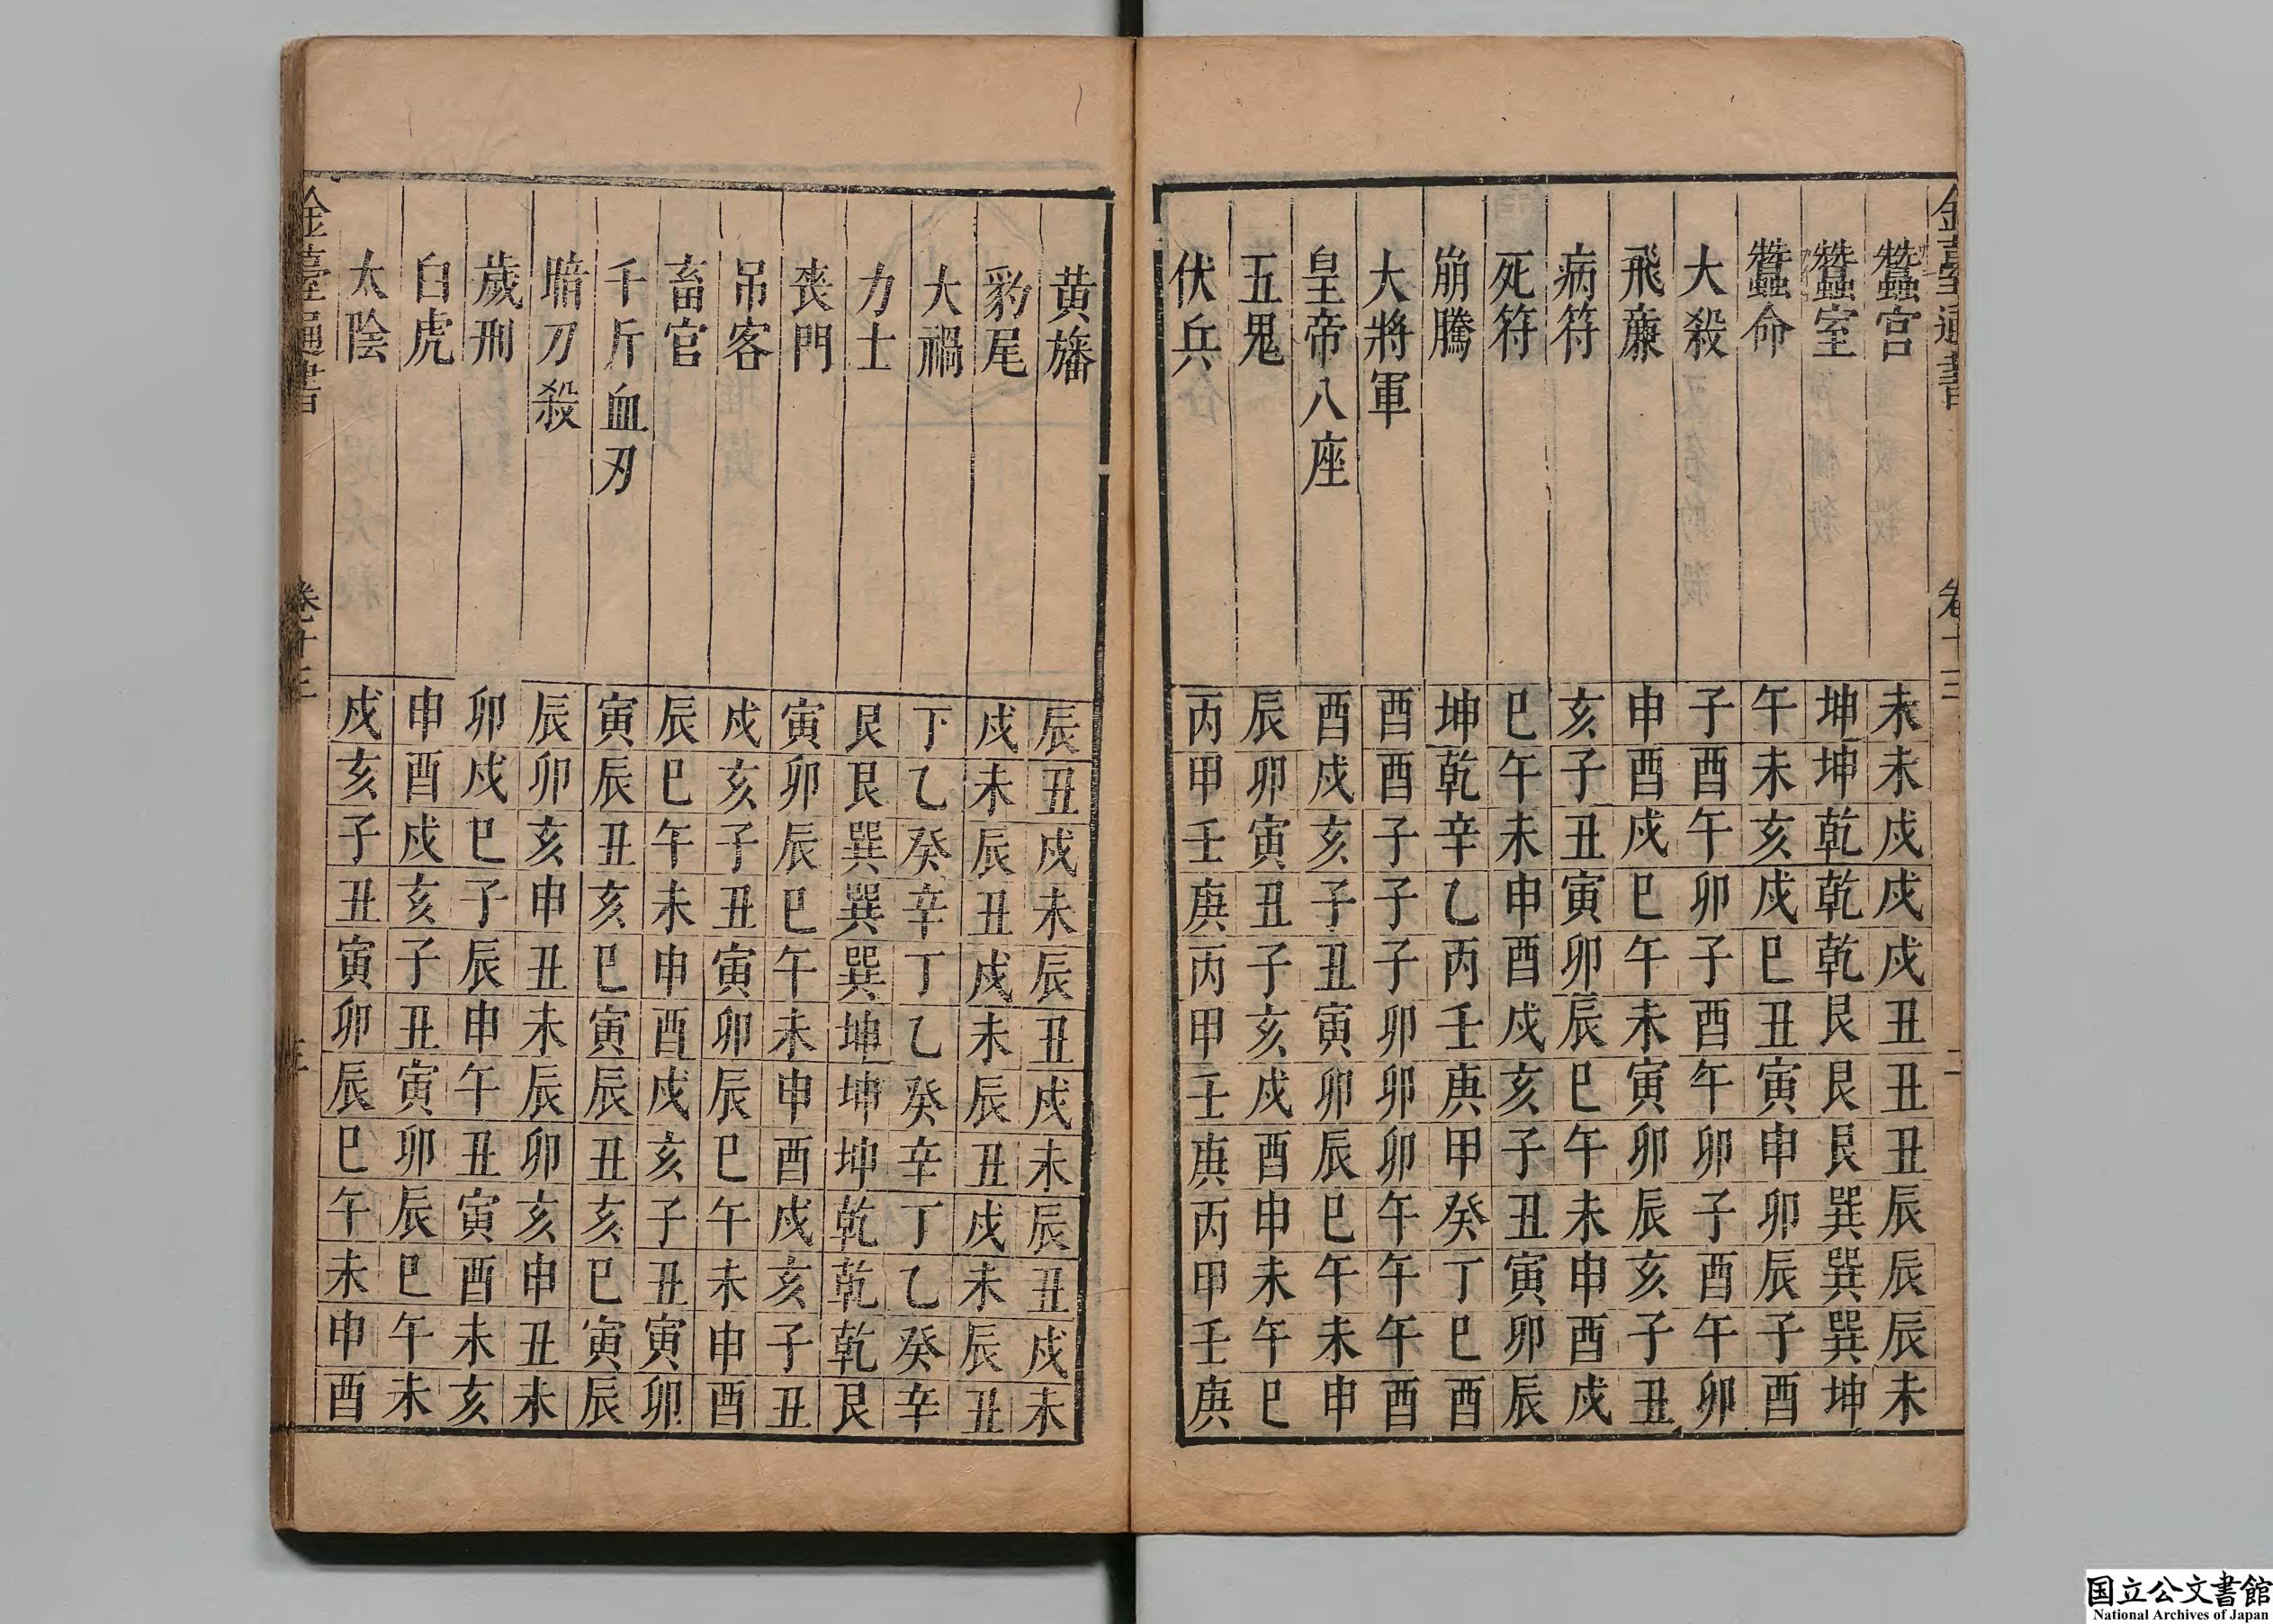 蠶宫未未戌戌戌丑丑丑辰辰辰未
蠶室坤坤乾乾乾艮艮艮巽巽巽坤
蠶命午未亥戌巳丑寅申卯辰子酉
大殺子酉午卯子酉午卯子酉午卯
飛廉申酉戌巳午未寅卯辰亥子丑
病符亥子丑寅卯辰巳午未申酉戌
死符巳午未申酉戌亥子丑寅卯辰
崩騰坤乾辛乙丙壬庚甲癸丁巳酉
大將軍酉酉子子子卯卯卯午午午酉
皇帝八座酉戌亥子丑寅卯辰巳午未申
五鬼辰卯寅丑子亥戌酉申未午巳
伏兵丙甲壬庚丙甲壬庚丙甲壬庚
黄旛辰丑戌未辰丑戌未辰丑戌未
豹尾戌未辰丑戌未辰丑戌未辰丑
大禍丁乙癸辛丁乙癸辛丁乙癸辛
力士艮艮巽巽巽坤坤坤乾乾乾艮
丧門寅卯辰巳午未申酉戌亥子丑
吊客戌亥子丑寅卯辰巳午未申酉
畜官辰巳午未申酉戌亥子丑寅卯
千斤血刃寅辰丑亥巳寅辰丑亥巳寅辰
暗刀殺辰卯亥申丑未辰卯亥申丑未
歲刑卯戌巳子辰申午丑寅酉未亥
白虎申酉戌亥子丑寅卯辰巳午未
太陰戌亥子丑寅卯辰巳午未申酉
卷十三
国立公文書館
National Archives of Japan